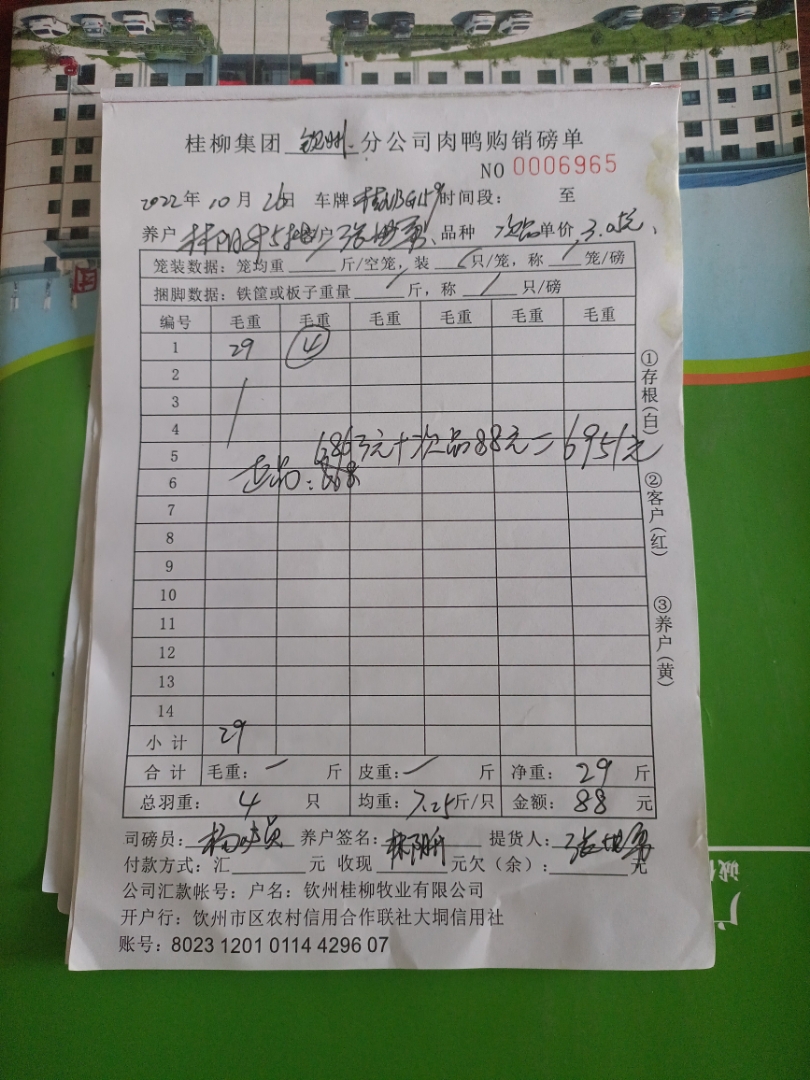 桂柳集团 钦州 分公司肉鸭购销磅单
NO 0006965
2022年 10月 26日 车牌 时间段： 至
养户 林阳升 客户 张 品种 次品 单价 3.05元
笼装数据：笼均重 斤/空笼，装 只/笼，称 笼/磅
捆脚数据：铁筐或板子重量 斤，称 只/磅
编号 毛重 毛重 毛重 毛重 毛重 毛重
1 29 4
2
3
4
5 6863元+次品88元=6951元
6 正品：
7
8
9
10
11
12
13
14
小计 29
合计 毛重： 斤 皮重： 斤 净重：29 斤
总羽重：4 只 均重：7.25斤/只 金额：88 元
司磅员：杨 养户签名：林阳升 提货人：张
付款方式：汇 元 收现 元欠（余）： 元
公司汇款帐号：户名：钦州桂柳牧业有限公司
开户行：钦州市区农村信用合作联社大垌信用社
账号：8023 1201 0114 4296 07
①存根(白)
②客户(红)
③养户(黄)